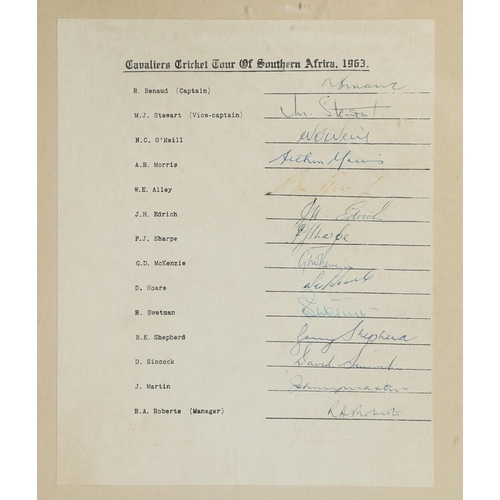 Cavaliers Cricket Tour Of Southern Africa, 1963.
R. Benaud (Captain) R Benaud
M.J. Stewart (Vice-captain) Stewart
N.C. O'Neill N O'Neill
A.R. Morris Arthur Morris
W.E. Alley
J.H. Edrich J H Edrich
P.J. Sharpe P J Sharpe
G.D. McKenzie G McKenzie
D. Hoare
R. Swetman Swetman
B.K. Shepherd Barry Shepherd
D. Sincock David Sincock
J. Martin
R.A. Roberts (Manager) R A Roberts